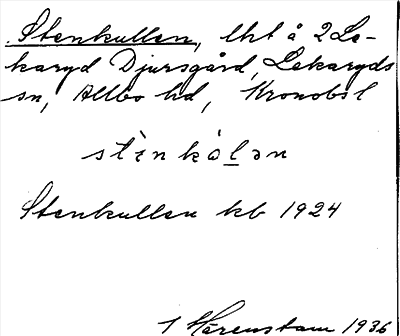 Stenkullen, lht å 2 Le-
karyd Djursgård, Lekaryds
sn, Allbo hd, Kronobs l
stènkòlən
Stenkullen kb 1924
Härenstam 1936